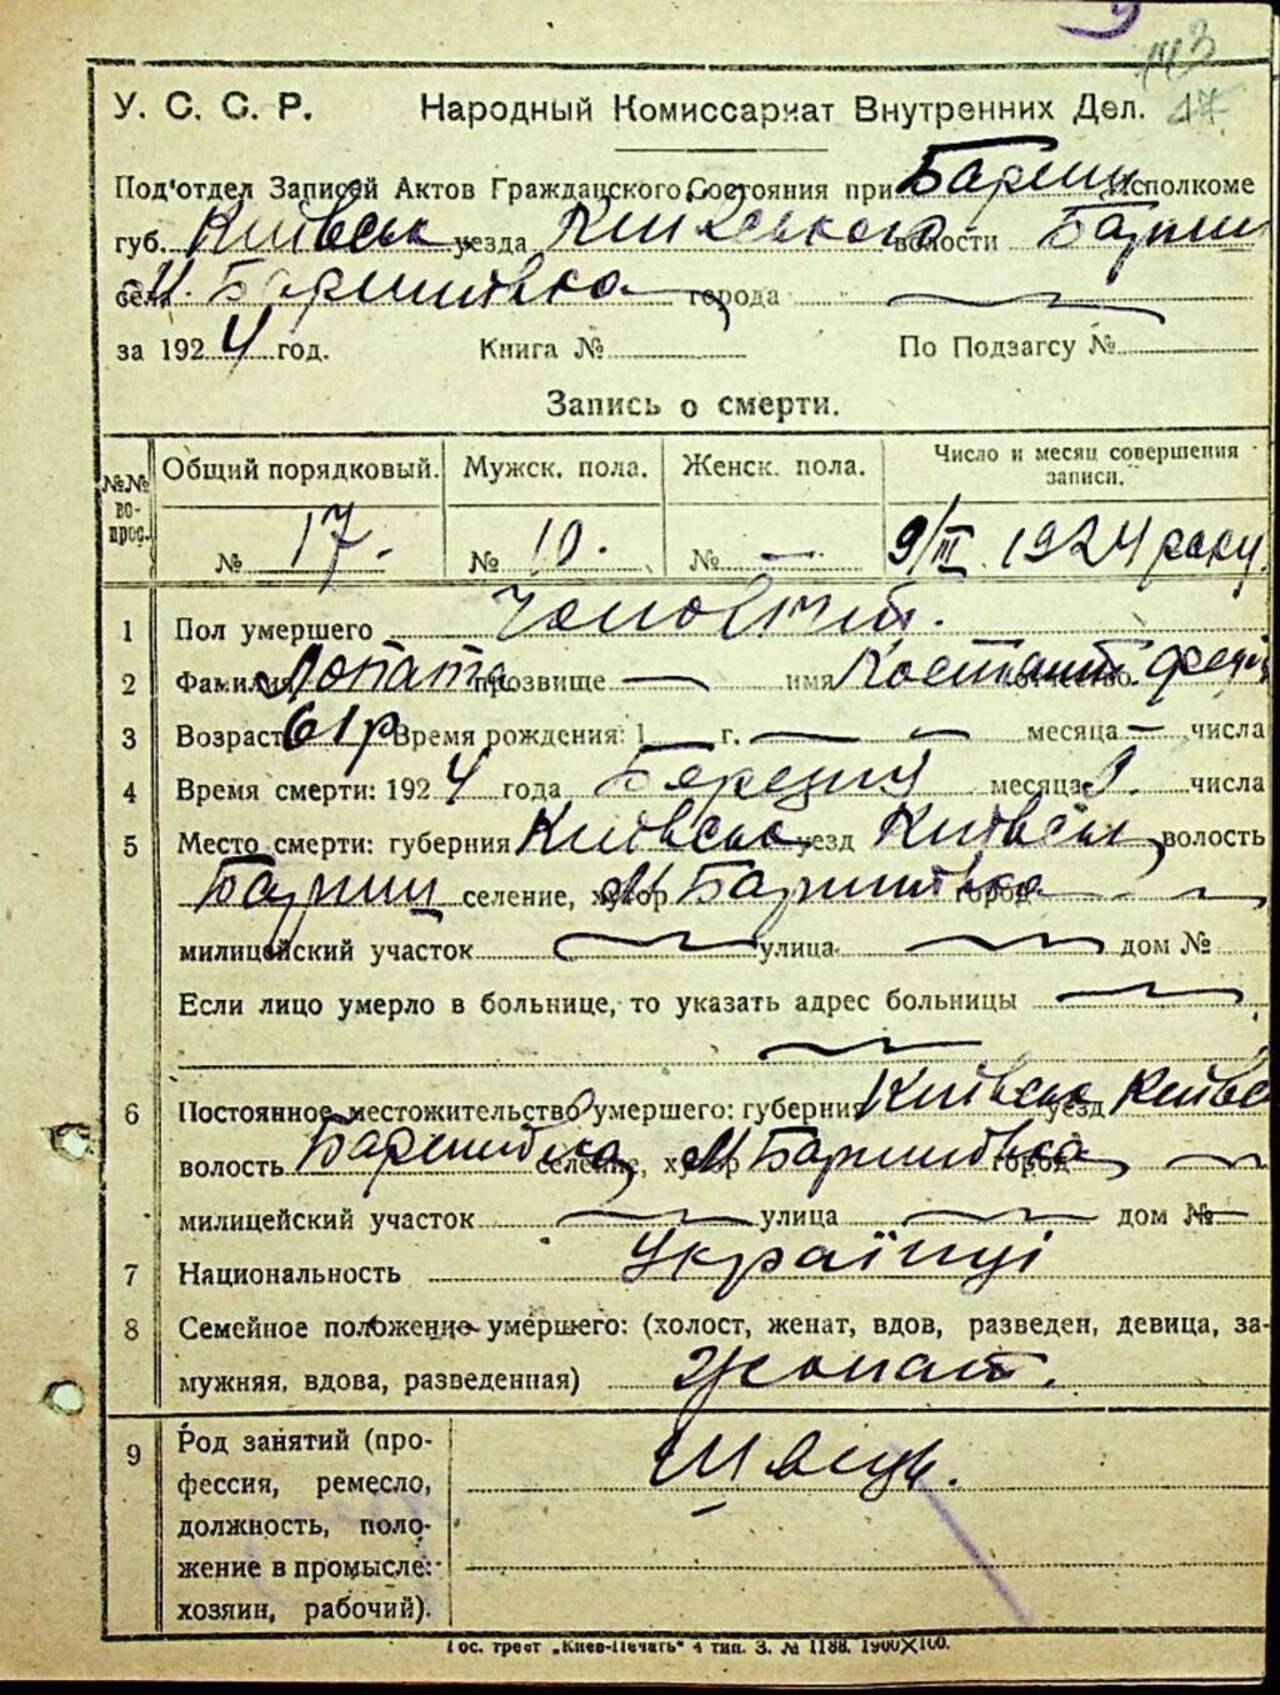 143
У. С. С. Р. Народный Комиссариат Внутренних Дел. 17
Под'отдел Записей Актов Гражданского Состояния при Бариш Исполкоме
губ. Київськ уезда Київського волости Бариш
села М. Баришівка города
за 1924 год. Книга № По Подзагсу №
Запись о смерти.
№№ вопрос. Общий порядковый. Мужск. пола. Женск. пола. Число и месяц совершения записи.
№ 17. № 10. № — 9/III. 1924 року.
1 Пол умершего Чоловічий.
2 Фамилия Лопата прозвище — имя Костянт. отчество
3 Возраст 61 р Время рождения: 1 г. — — месяца — числа
4 Время смерти: 1924 года Березня месяца 9. числа
5 Место смерти: губерния Київська уезд Київськ волость
Бариш селение, хутор М Баришівка город —
милицейский участок — улица — дом №
Если лицо умерло в больнице, то указать адрес больницы —
—
6 Постоянное местожительство умершего: губерния Київськ уезд Київс
волость Баришівка селение, хутор М Баришівка город —
милицейский участок — улица — дом № —
7 Национальность Українці
8 Семейное положение умершего: (холост, женат, вдов, разведен, девица, за-
мужняя, вдова, разведенная) Жонат.
9 Род занятий (про- Швець.
фессия, ремесло,
должность, поло-
жение в промысле:
хозяин, рабочий).
Гос. трест „Киев-Печать" 4 тип. З. № 1188. 1900Х100.